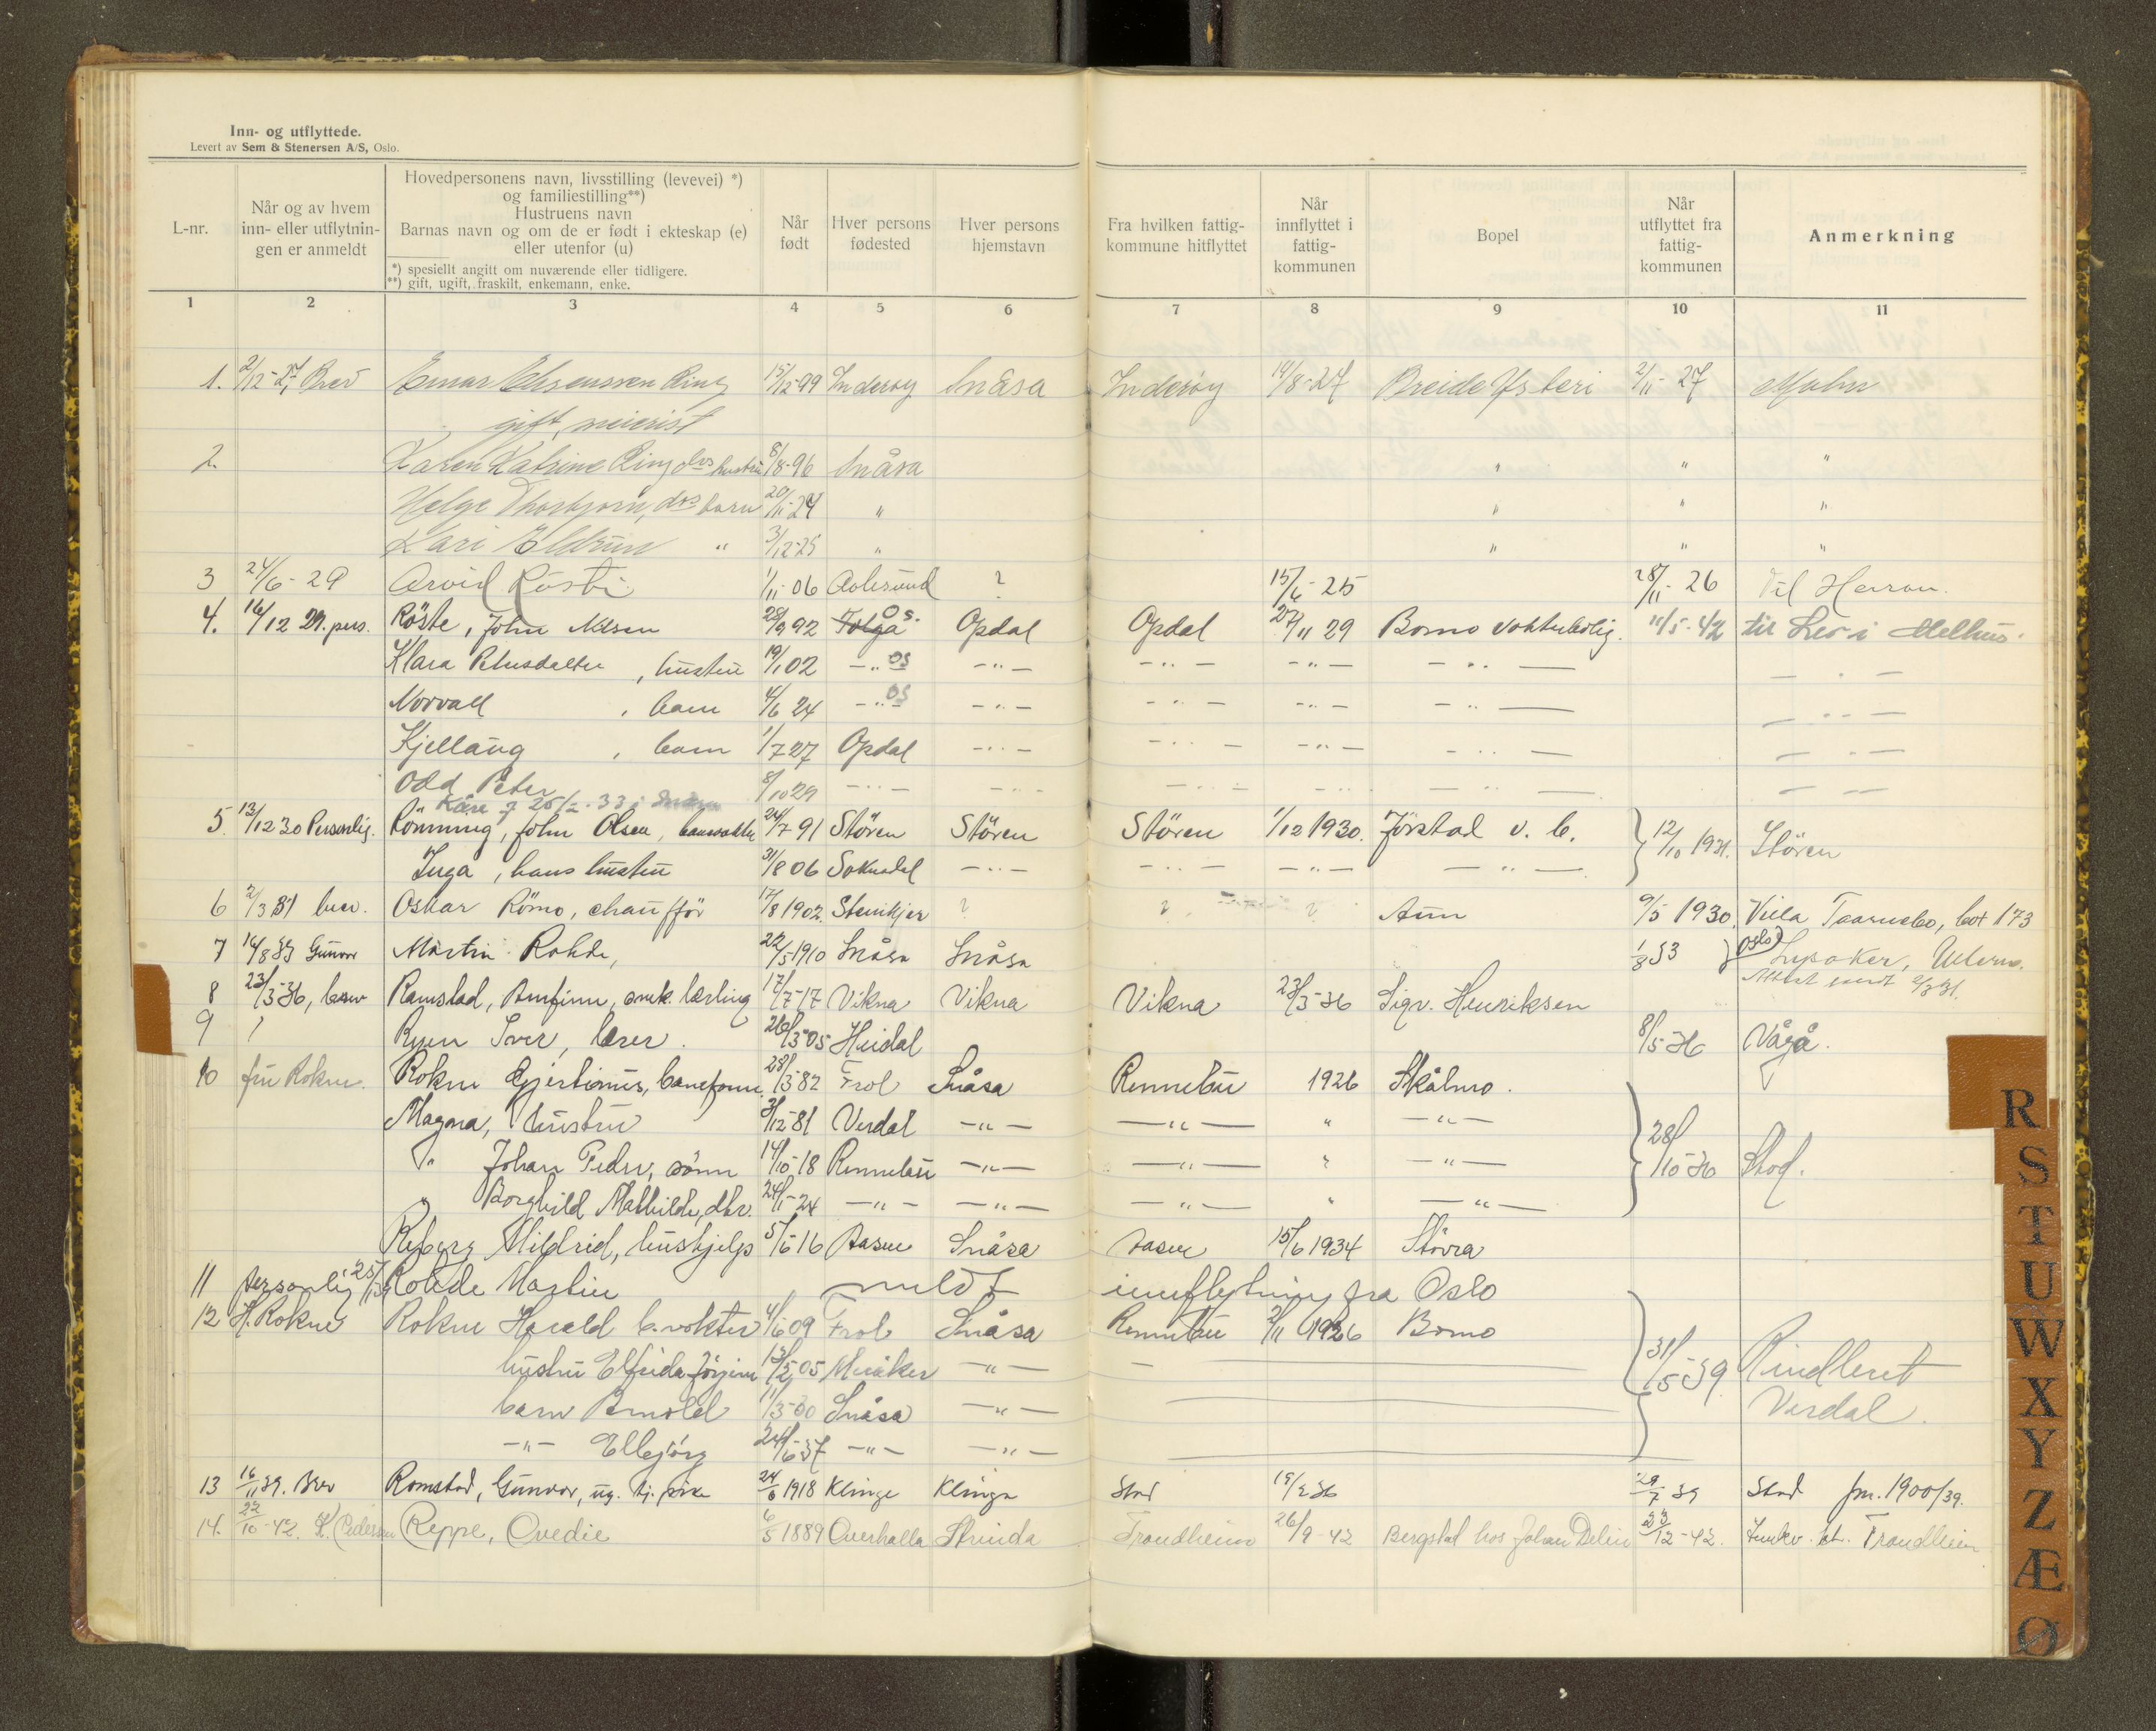 Inn- og utflyttede.
Levert av Sem & Stenersen A/S, Oslo.
L-nr.
Når og av hvem inn- eller utflytnin- gen er anmeldt
Hovedpersonens navn, livsstilling (levevei) *)
og familiestilling**)
Hustruens navn
Barnas navn og om de er født i ekteskap (e)
eller utenfor (u)
*) spesiellt angitt om nuværende eller tidligere.
**) gift, ugift, fraskilt, enkemann, enke.
Når født
Hver persons fødested
Hver persons hjemstavn
Fra hvilken fattig- kommune hitflyttet
Når innflyttet i fattig- kommunen
Bopel
Når utflyttet fra fattig- kommunen
Anmerkning
1 2 3 4 5 6 7 8 9 10 11
1. 2/12-27 Brev Einar Ring 15/12-99 Inderøy Snåsa Inderøy 14/8-27 Breide Ysteri 2/11-27 Malm
gift, meierist
2. Karen Katrine Ring ds hustru 8/8-96 Snåsa " " "
Helge Thorbjørn, ds barn 20/11-24 " " " "
Kari Eldrun " 3/12-25 " " " "
3 24/6-29 Arvid Rösti 1/11-06 Aalesund ? 15/6-25 28/11-26 til Herran.
4. 16/12 29. pers. Röste, John Nilsen 28/9 92 Tolga Os. Opdal Opdal 27/11 29 Bomo vokterbolig. 11/5-42 til Ler i Melhus.
Klara Petersdatter, hustru 19/1 02 -"- os -"- -"- -"- -"- -"-
Norvall, barn 4/6 24 -"- os -"- -"- -"- -"- -"-
Kjellaug, barn 1/7 27 Opdal -"- -"- -"- -"- -"-
Odd Peter 8/10 29 -"- -"- -"- -"- -"- -"-
Kåre f 25/2-33 i Snåsa
5. 13/12 30 Personlig. Römning, John Olsen, banevokter 24/7 91 Stören Stören Stören 1/12 1930. Jörstad v. b. 12/10 1931. Stören
Inga, hans hustru 31/8 06 Soknedal -"- -"- -"- -"-
6 2/3 31 brev. Oskar Römo, chaufför 17/8 1902. Steinkjer ? ? ? Aun 9/5 1930. Villa Taarnebo, bot 173
7 14/8 33 Gunvor Martin Rohde, 22/5 1910 Snåsa Snåsa 1/8 33 Oslo Lysaker,
8 23/3-36, brev Ramstad, Arnfinn, snek. lærling 17/7-17 Vikna Vikna Vikna 23/3-36 Sigv. Henriksen
9 Ryen Iver, lærer. 26/3-05 Heidal 8/5-36 Vågå.
10 fru Rokne. Rokne Gjertinius, baneform. 28/3-82 Frol Snåsa Rennebu 1926 Skålmo.
Magna, hustru 3/12-81 Verdal -"- -"- " -"- 28/10-36 Stod.
" Johan Peder, sönn 14/10-18 Rennebu -"- -"- " -"-
" Borghild Mathilde, dtr. 24/1-24 -"- -"- -"- " -"-
Reberg Mildrid, hushjelp 5/6-16 Aasen Snåsa Aasen 15/6 1934 Stövra
11 personlig Rohde Martin meldt innflytning fra Oslo
12 H. Rokne Rokne Harald b.vokter 4/6 09 Frol Snåsa Rennebu 2/11 1926 Bomo
hustru Elfrida Jörgine 13/5 05 Meråker -"- 31/5-39 Rindleret
barn Arnold 11/3-30 Snåsa -"- Verdal.
-"- Ellbjörg 24/6-37 -"- -"-
13 16/11 39. Brev Romstad, Gunvor, ug. tj. pike 24/6 1918 Klinga Klinga Stod 15/2 36 29/7 39 Stod jnr. 1900/39.
14. 22/10-42. K. Pedersen Reppe, Ovedie 6/5 1889 Overhalla Strinda Trondheim 26/9-42 Bergstad hos Johan Delin 23/12-42. Trondheim
R
S
T
U
W
X
Y
Z
Æ
Ø